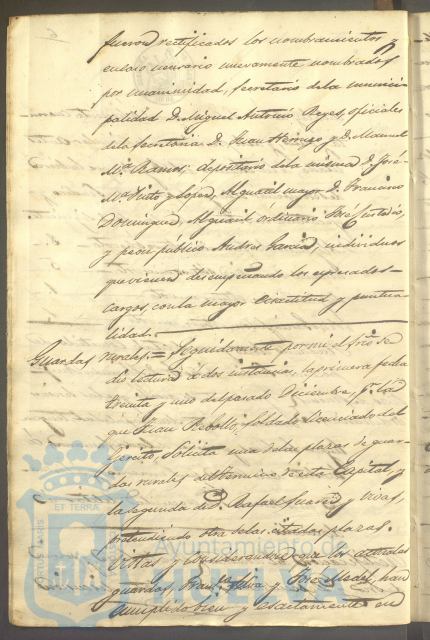 fueron rectificados los nombramientos y
en caso necesario nuevamente nombrados
por unanimidad, Secretario de la munici-
palidad D. Miguel Antonio Reyes, oficiales
de la Secretaria D. Juan Hernigo y D. Manuel
Mª Ramos; depositario de la misma D. José
Mª Pinto y Lopez, Alguacil mayor D. Francisco
Dominguez, Alguacil ordinario José
y peon publico Andres Garcia, individuos
que vienen desempeñando los espresados
cargos, con la mayor exactitud y puntua-
lidad.
Guardas rurales = Seguidamente por mi el Srio se
dio lectura á dos instancias, la primera fecha
treinta y uno del pasado Diciembre, pr la
que Juan Rebollo, Soldado licenciado del
Ejercito, solicita una de las plazas de guar-
das rurales del termino de esta Capital, y
la segunda de D. Rafael Suarez y Vivas,
pretendiendo otra de las citadas plazas.
Vistas y considerando que los actuales
guardas, Francº Silva y José han
cumplido bien y exactamente en
ET TERRA
Ayuntamiento de
HUELVA